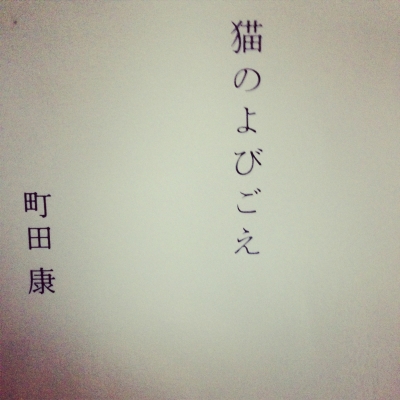 猫のよびごえ
町田康